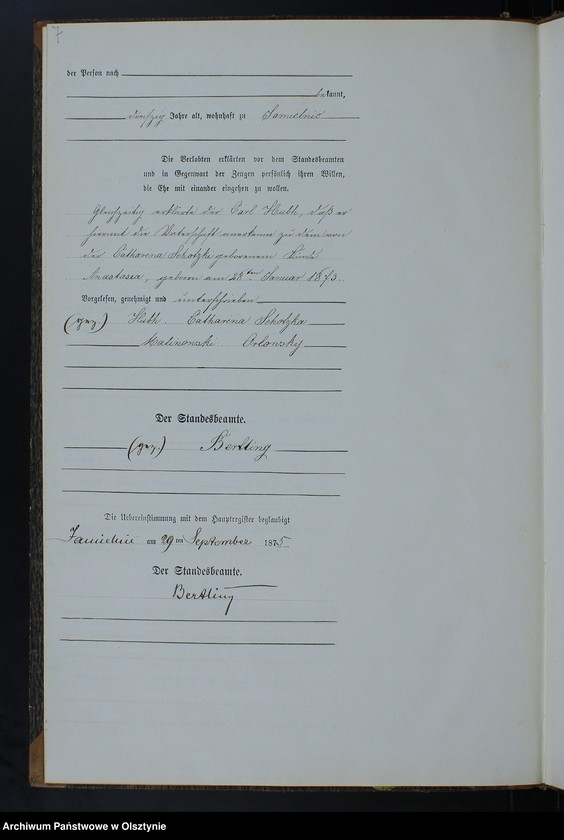 7
der Person nach
bekannt,
dreißig Jahre alt, wohnhaft zu Samielnic
Die Verlobten erklärten vor dem Standesbeamten
und in Gegenwart der Zeugen persönlich ihren Willen,
die Ehe mit einander eingehen zu wollen.
Gleichzeitig erklärte der Carl Huth, daß er
hiermit die Vaterschaft anerkenne zu dem von
der Catharina Schotzka geborenem Kinde
Anastasia, geboren am 28ten Januar 1873.
Vorgelesen, genehmigt und unterschrieben
(gez) Huth. Catharina Schotzka
Malinonski Orlonsky
Der Standesbeamte.
(gez) Bertling
Die Uebereinstimmung mit dem Hauptregister beglaubigt
am 29ten September 1875
Der Standesbeamte.
Bertling
Archiwum Państwowe w Olsztynie